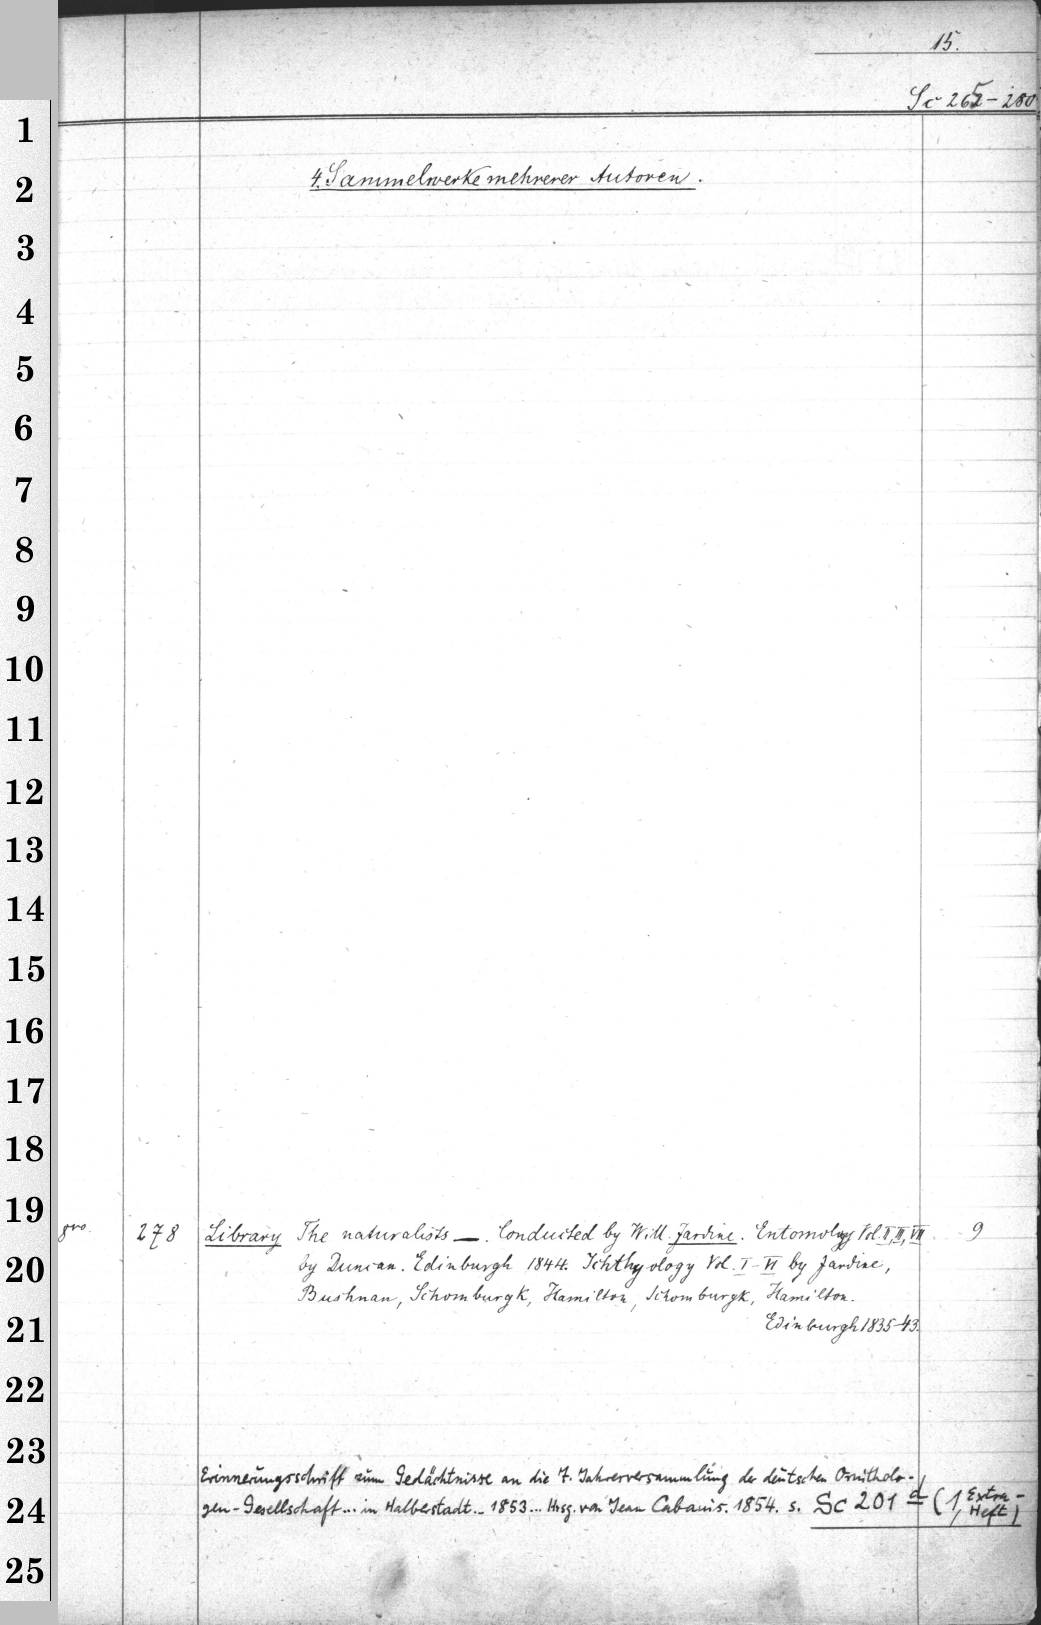 15.
Sc 265-280
4. Sammelwerke mehrerer Autoren.
1
2
3
4
5
6
7
8
9
10
11
12
13
14
15
16
17
18
19
20
21
22
23
24
25
8vo. 278 Library The naturalists —. Conducted by Will. Jardine. Entomology Vol. II, III, VII. 9
by Duncan. Edinburgh 1844. Ichthyology Vol. I-VI by Jardine,
Bushnan, Schomburgk, Hamilton, Schomburgk, Hamilton.
Edinburgh 1835-43.
Erinnerungsschrift zum Gedächtnisse an die 7. Jahresversammlung der deutschen Ornitholo-
gen-Gesellschaft... in Halberstadt... 1853... Hrsg. von Jean Cabanis. 1854. s. Sc 201 d (1, Extra-
Heft)